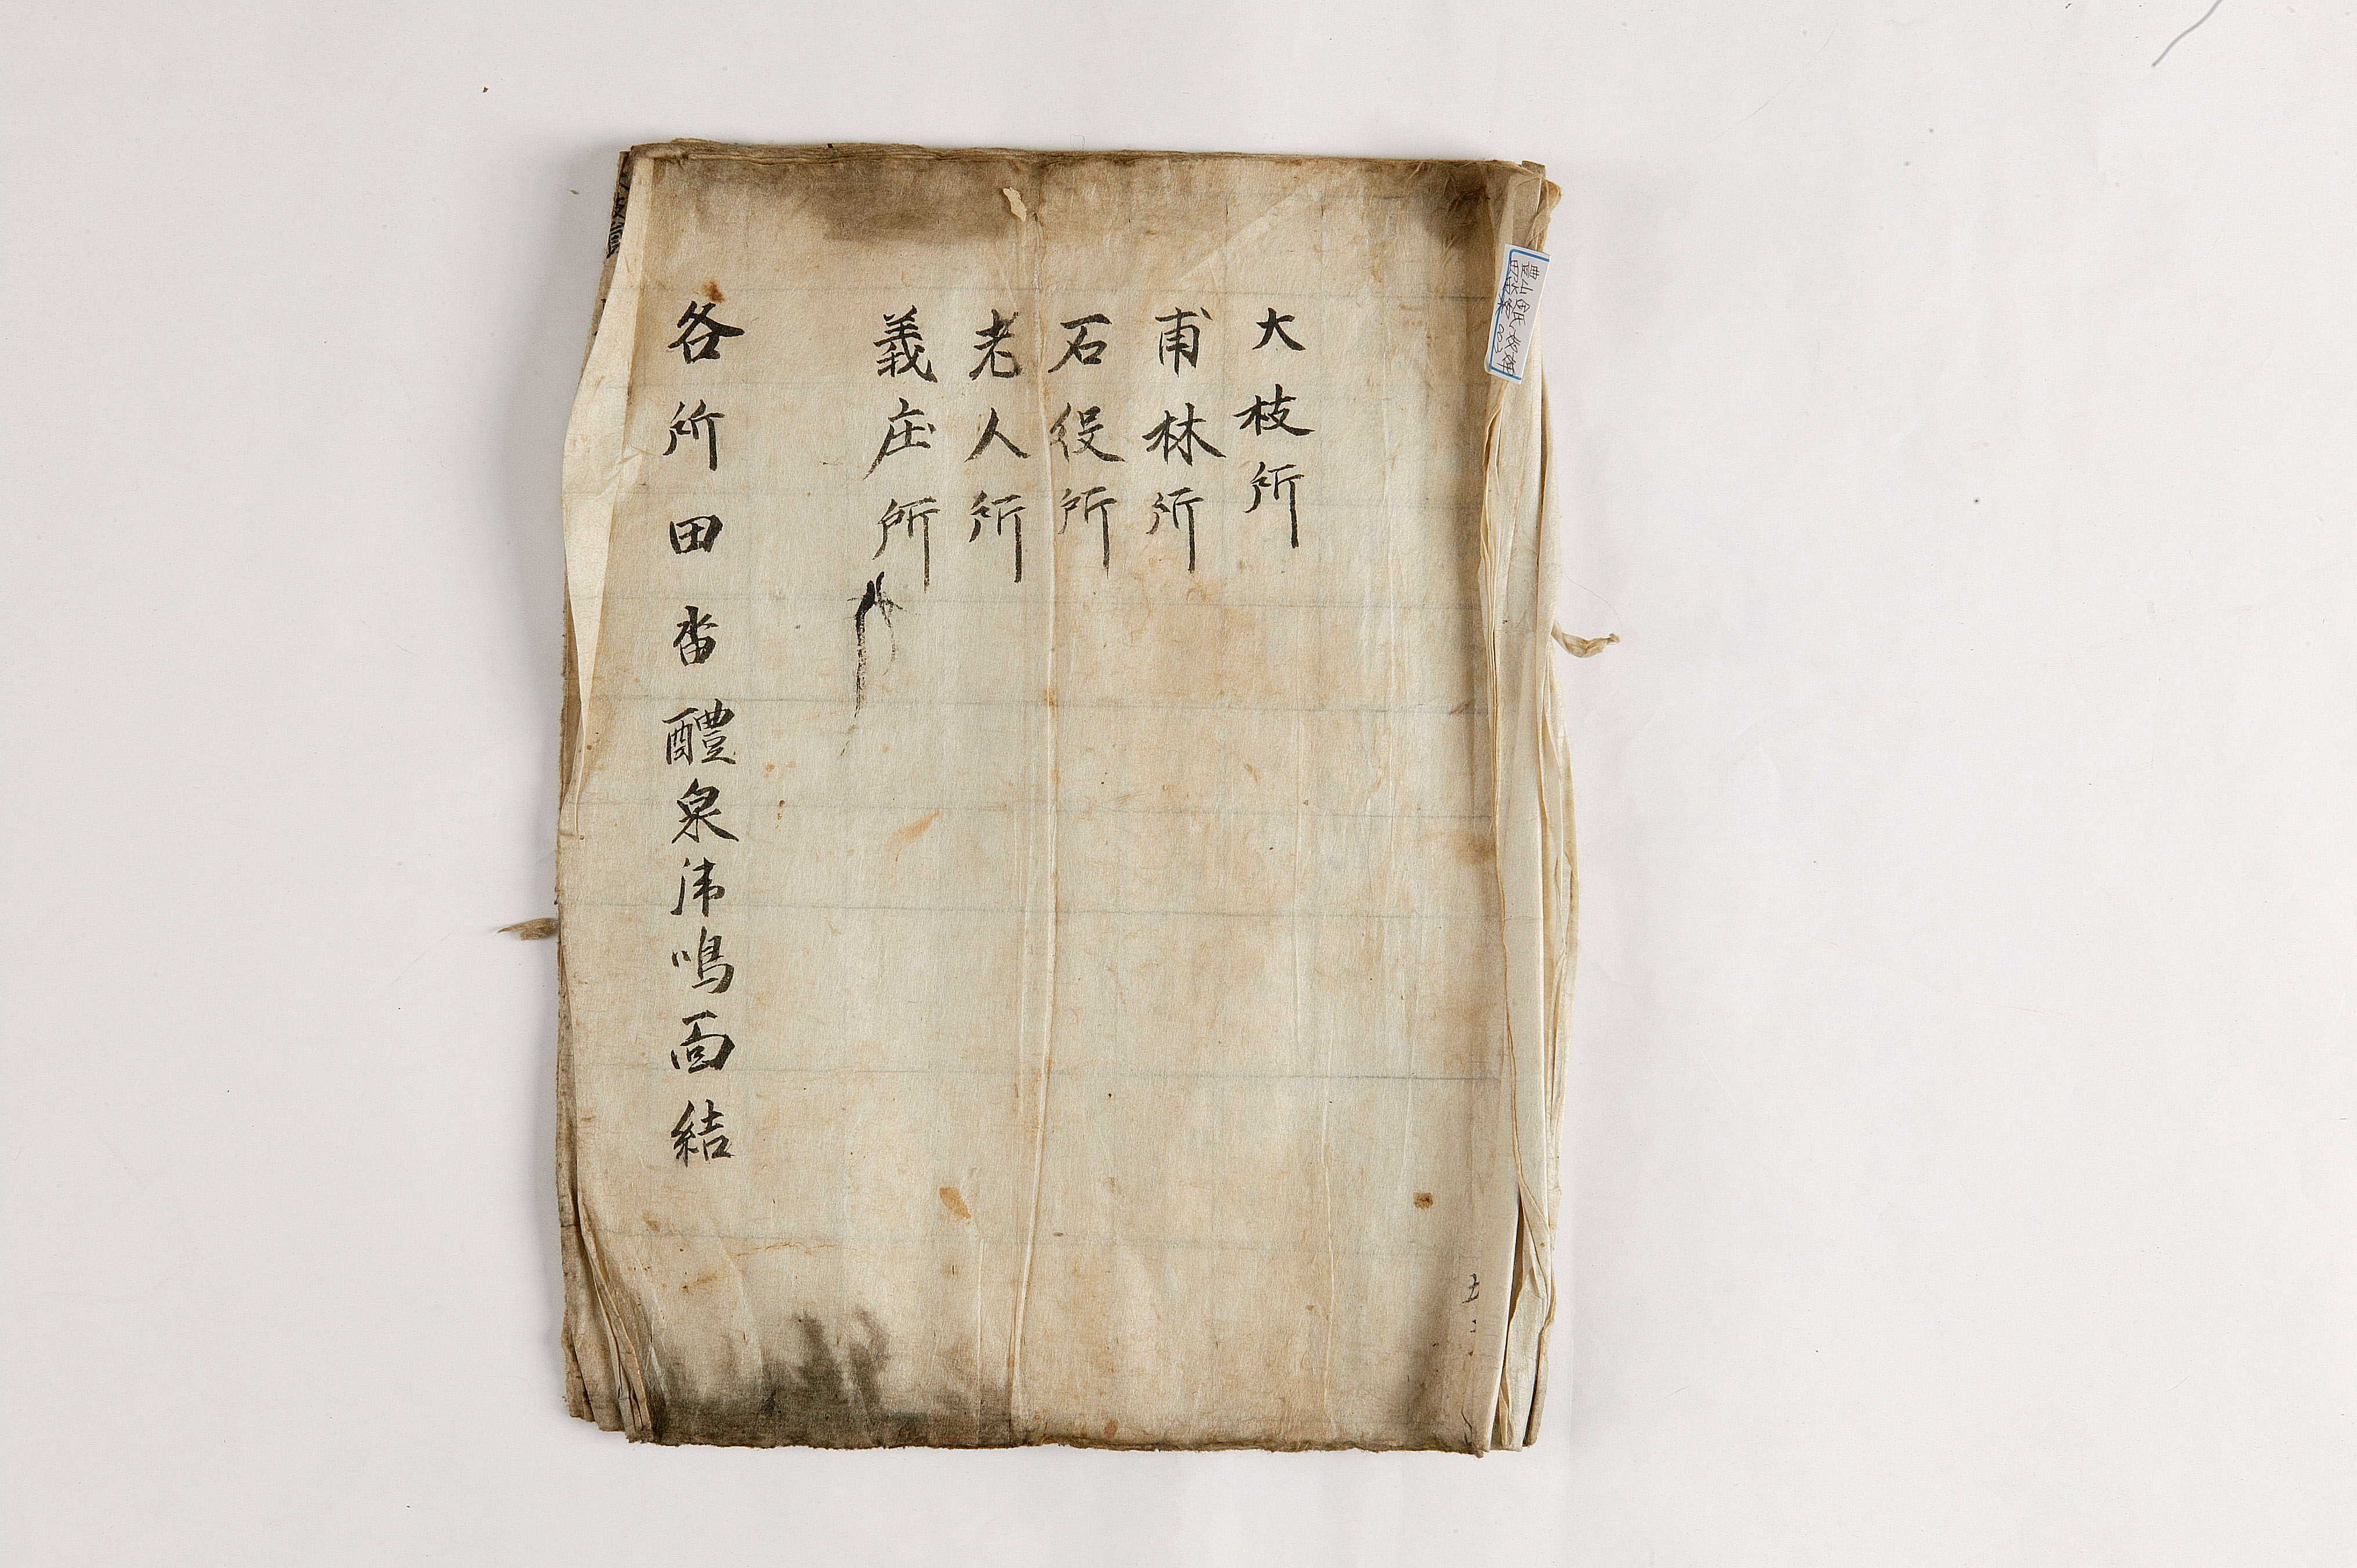 大枝所
甫林所
石役所
老人所
義庄所
各所田畓醴泉渧鳴面結